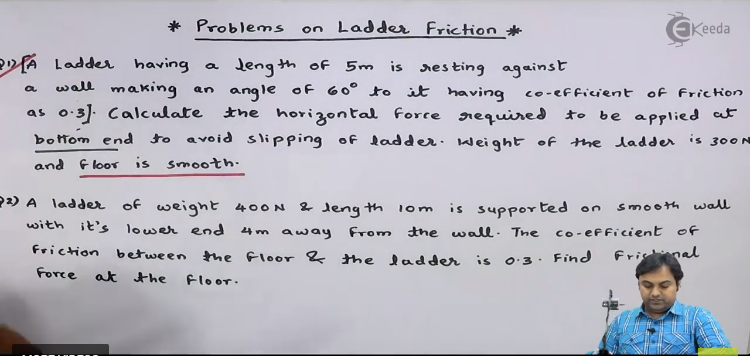 * Problems on Ladder Friction *
Ekeeda
Q1) [A Ladder having a length of 5m is resting against
a wall making an angle of 60° to it having co-efficient of friction
as 0.3]. Calculate the horizontal force required to be applied at
bottom end to avoid slipping of ladder. Weight of the ladder is 300N
and floor is smooth.
Q2) A ladder of weight 400N & length 10m is supported on smooth wall
with it's lower end 4m away from the wall. The co-efficient of
friction between the floor & the ladder is 0.3. Find Frictional
force at the floor.